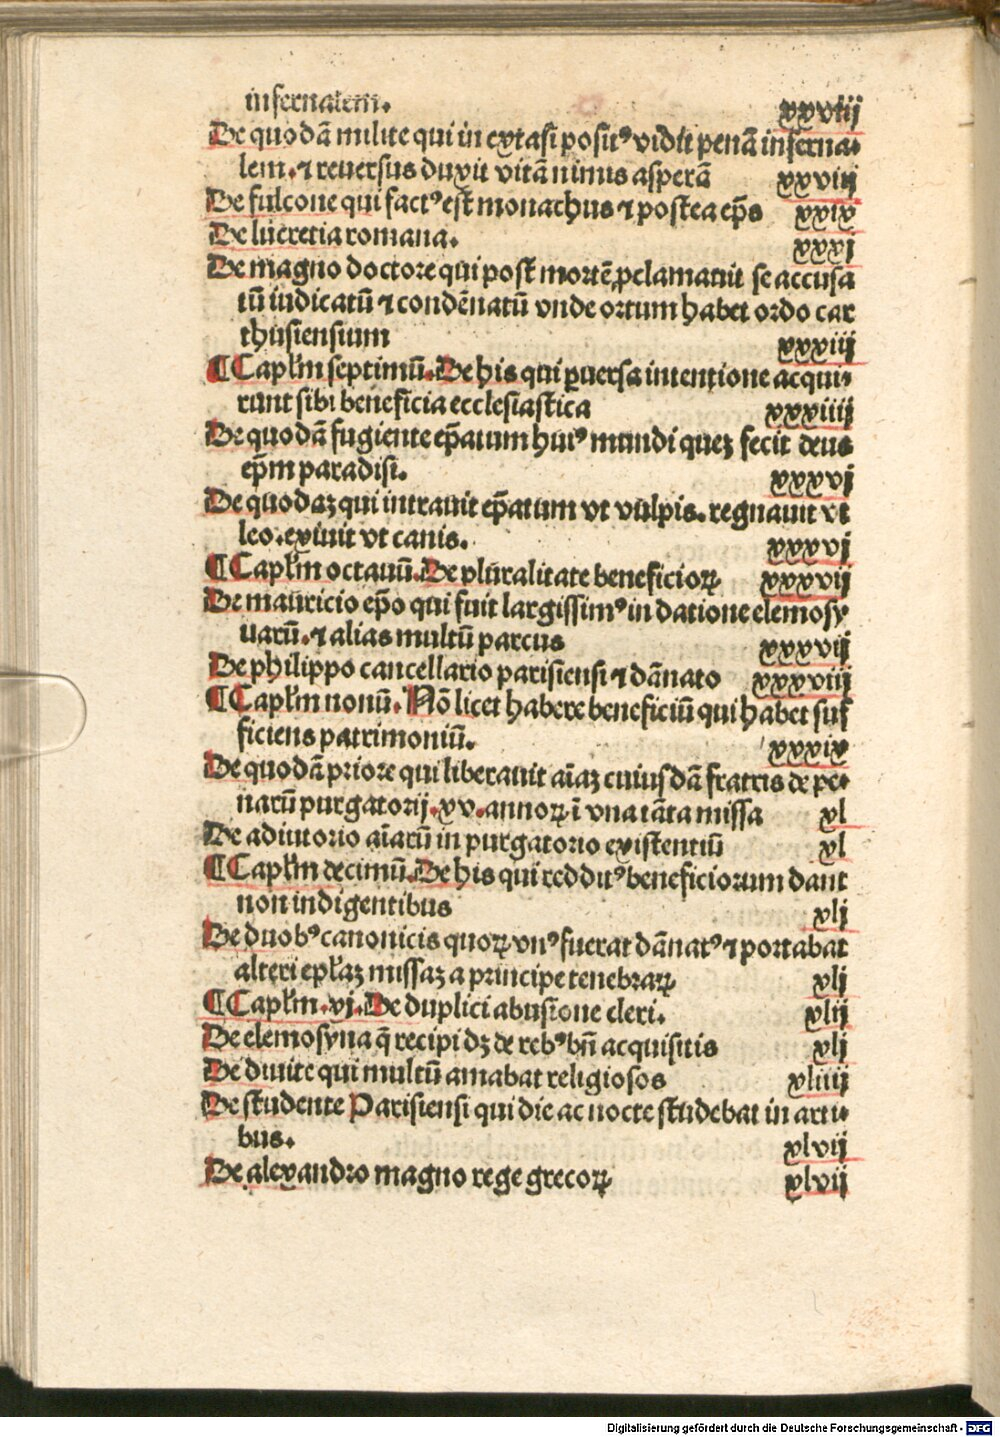 infernalem. xxviij
De quodã milite qui in extasi positꝰ vidit penã inferna⸗
lem. ⁊ reuersus duxit vitã nimis asperã xxviij
De fulcone qui factꝰ est monachus ⁊ postea ep̃s xxix
De lucretia romana. xxxj
De magno doctore qui post mortẽ ꝓclamauit se accusa
tũ iudicatũ ⁊ condẽnatũ vnde ortum habet ordo car
thusiensium xxxiij
¶ Capłm septimũ. De his qui ꝑuersa intentione acqui⸗
runt sibi beneficia ecclesiastica xxxiiij
De quodã fugiente ep̃atum huiꝰ mundi quez fecit deus
ep̃m paradisi. xxxvj
De quodaz qui intrauit ep̃atum vt vulpis. regnauit vt
leo. exiuit vt canis. xxxvj
¶ Capłm octauũ. De pluralitate beneficioꝝ xxxvij
De mauricio ep̃o qui fuit largissimꝰ in datione elemosy
narũ. ⁊ alias multũ parcus xxxvij
De philippo cancellario parisiensi ⁊ dãnato xxxviij
¶ Capłm nonũ. Nõ licet habere beneficiũ qui habet suf
ficiens patrimoniũ. xxxix
De quodã priore qui liberauit aĩaz cuiusdã fratris de pe⸗
narũ purgatorij. xv. annoꝝ ĩ vna tãta missa xl
De adiutorio aĩarũ in purgatorio existentiũ xl
¶ Capłm decimũ. De his qui redditꝰ beneficiorum dant
non indigentibus xlj
De duobꝰ canonicis quoꝝ vnꝰ fuerat dãnatꝰ ⁊ portabat
alteri epłaz missaz a principe tenebraꝝ xlj
¶ Capłm. xj. De duplici abusione cleri. xlij
De elemosyna q̃ recipi dz de rebꝰ bñ acquisitis xlj
De diuite qui multũ amabat religiosos xliiij
De studente Parisiensi qui die ac nocte studebat in arti⸗
bus. xlvij
De alexandro magno rege grecoꝝ xlvij
Digitalisierung gefördert durch die Deutsche Forschungsgemeinschaft - DFG